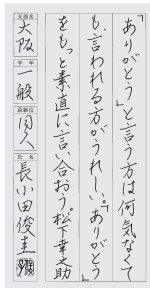 「ありがとう」と言う方は何気なくて
も、言われる方がうれしい。「ありがとう」
をもっと素直に言い合おう。松下幸之助
支部名 大阪
学年 一般
段級位 同人
氏名 長小田俊圭